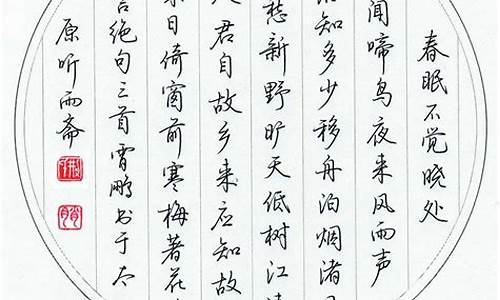 春眠不觉晓处
闻啼鸟夜来风雨声
落知多少移舟泊烟渚日
愁新野旷天低树江清
君自故乡来应知故
来日绮窗前寒梅著花
言绝句三首霄鹏书于太
原听雨斋